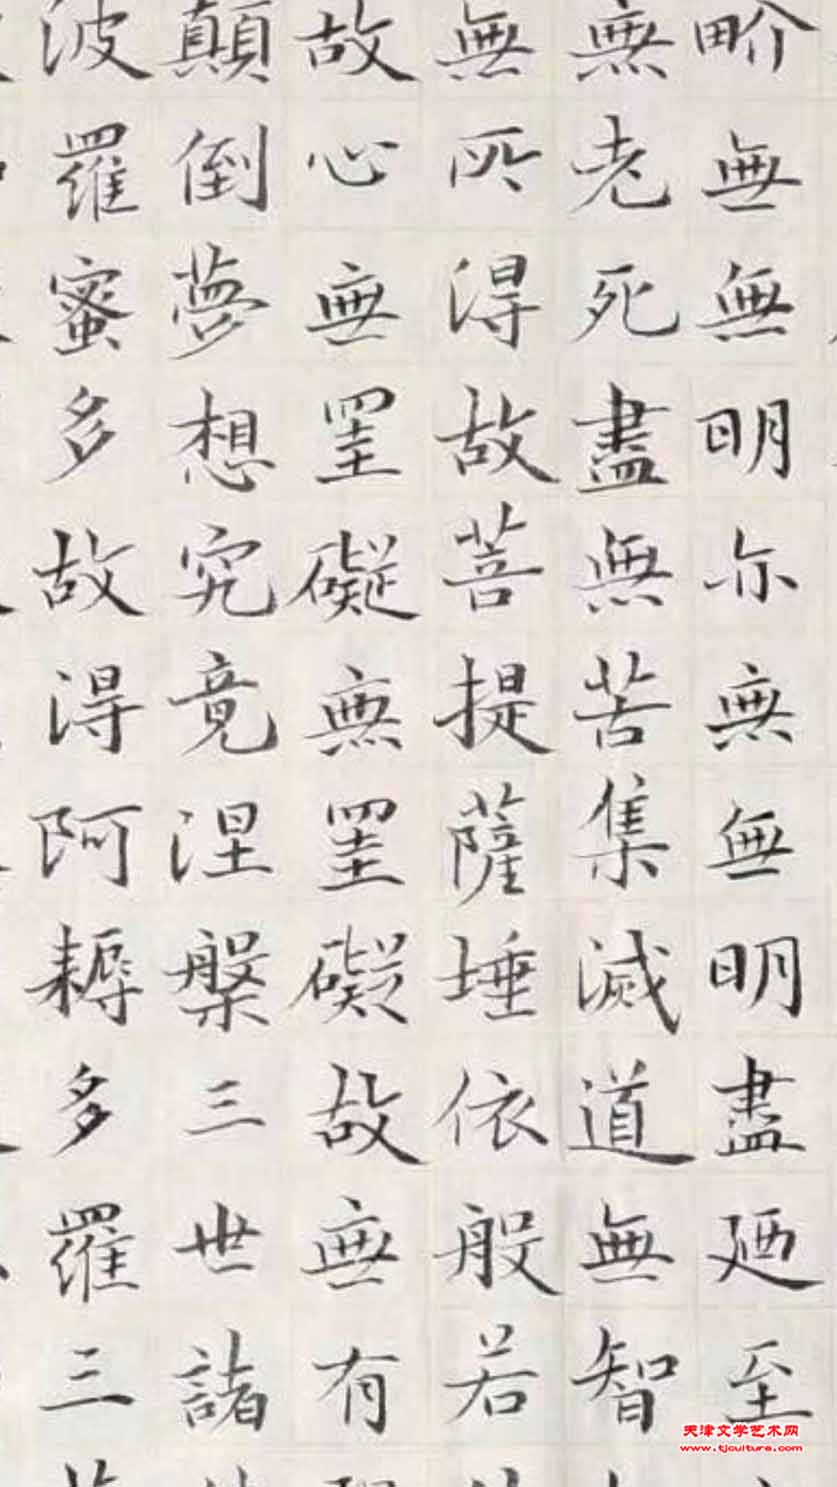 畍無無明亦無無明盡廼至
無老死盡無苦集滅道無智
無所得故菩提薩埵依般若
故心無罣礙無罣礙故無有
顛倒夢想究竟涅槃三世諸
波羅蜜多故得阿耨多羅三
天津文学艺术网
www.tjculture.com